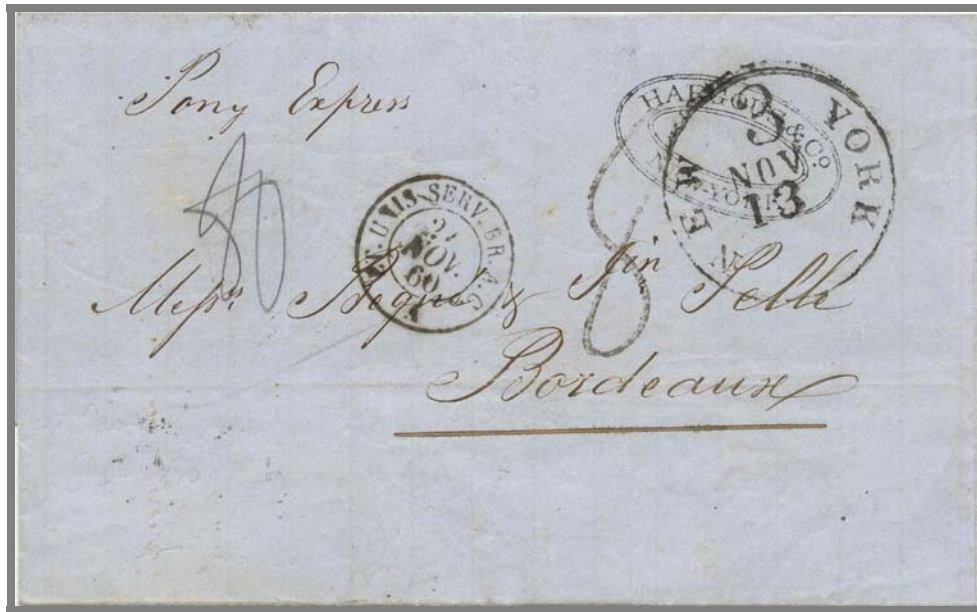 Pony Express
HARGOUS & Co
NEW-YORK
NEW YORK
3
NOV
13
ET. UNIS. SERV. BR. A. C.
2
NOV.
60
8
Messrs & Jin Pelle
Bordeaux